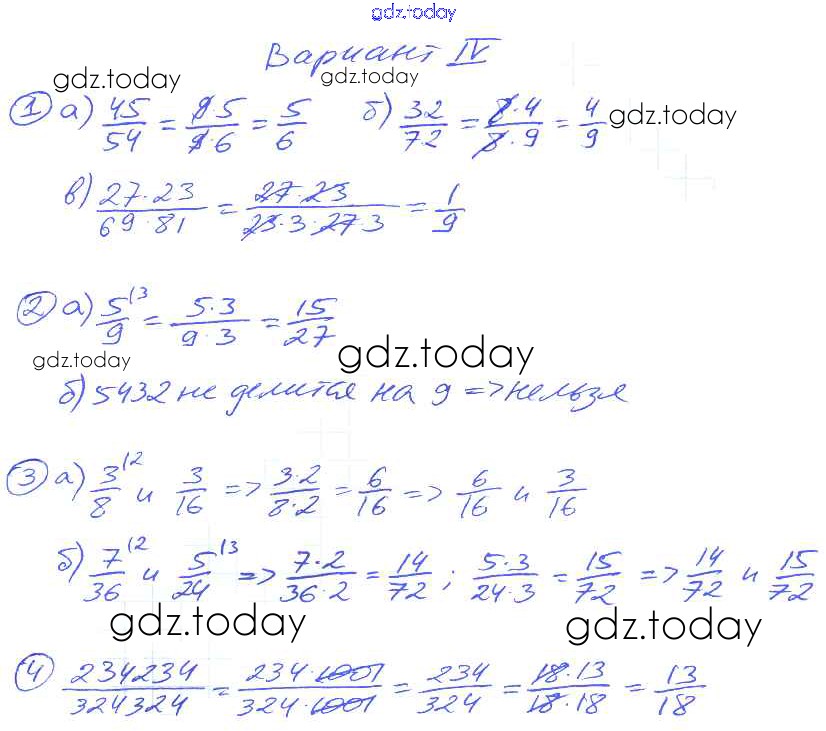 gdz.today
Вариант IV
gdz.today gdz.today
① а) 45/54 = 9·5/9·6 = 5/6 б) 32/72 = 8·4/8·9 = 4/9 gdz.today
в) 27·23/69·81 = 27·23/23·3·27·3 = 1/9
② а) 5/9 ^(3 = 5·3/9·3 = 15/27
gdz.today gdz.today
б) 5432 не делится на 9 => нельзя
③ а) 3/8 ^(2 и 3/16 => 3·2/8·2 = 6/16 => 6/16 и 3/16
б) 7/36 ^(2 и 5/24 ^(3 => 7·2/36·2 = 14/72 ; 5·3/24·3 = 15/72 => 14/72 и 15/72
gdz.today gdz.today
④ 234234/324324 = 234·1001/324·1001 = 234/324 = 18·13/18·18 = 13/18